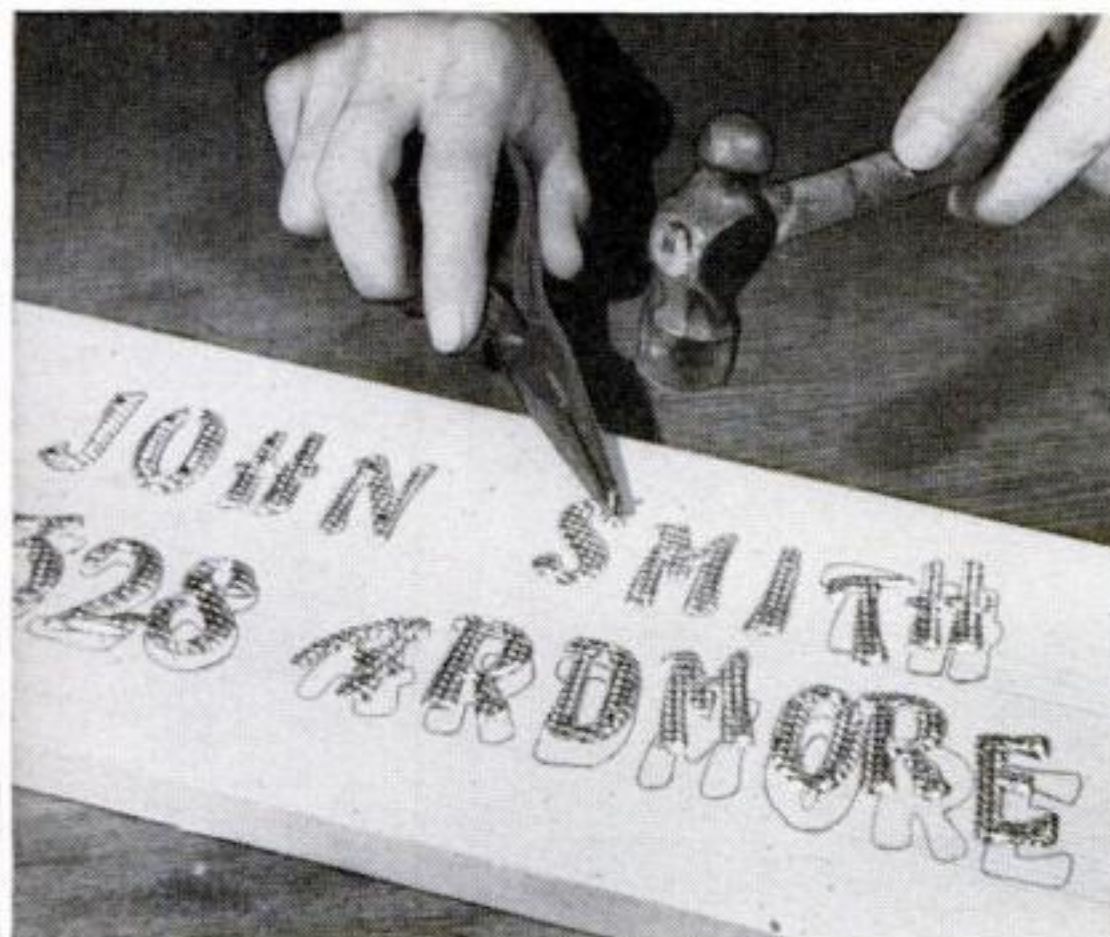 JOHN SMITH
328 ARDMORE